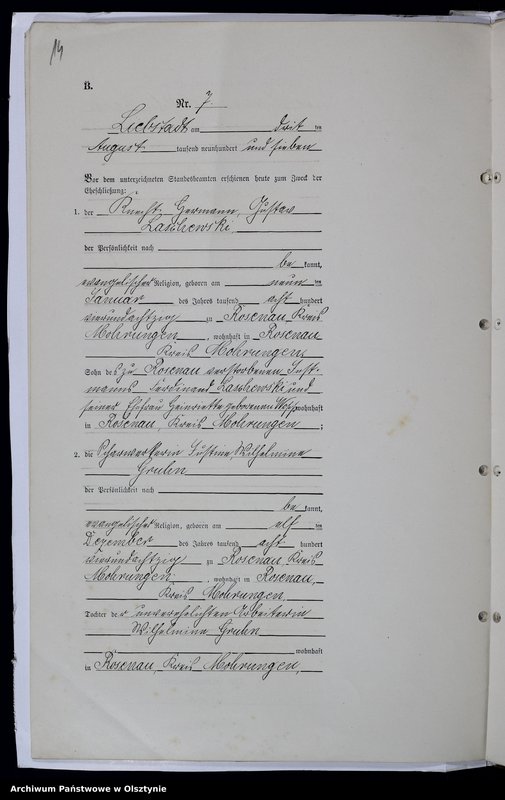 14
B.
Nr. 7.
Liebstadt am dritten
August tausend neunhundert und sieben
Vor dem unterzeichneten Standesbeamten erschienen heute zum Zweck der
Eheschließung:
1. der Knecht Hermann Gustav
Laschewski
der Persönlichkeit nach
bekannt,
evangelischer Religion, geboren am neunten
Januar des Jahres tausend acht hundert
vierundachtzig zu Rosenau, Kreis
Mohrungen, wohnhaft in Rosenau
Kreis Mohrungen,
Sohn des zu Rosenau verstorbenen Inst-
manns Ferdinand Laschewski und
seiner Ehefrau Henriette geborenen wohnhaft
in Rosenau, Kreis Mohrungen;
2. die Scharwerkerin Justine Wilhelmine
Gruhn
der Persönlichkeit nach
bekannt,
evangelischer Religion, geboren am elften
Dezember des Jahres tausend acht hundert
vierundachtzig zu Rosenau, Kreis
Mohrungen, wohnhaft in Rosenau,
Kreis Mohrungen,
Tochter der unverehelichten Arbeiterin
Wilhelmine Gruhn
wohnhaft
in Rosenau, Kreis Mohrungen,
Archiwum Państwowe w Olsztynie